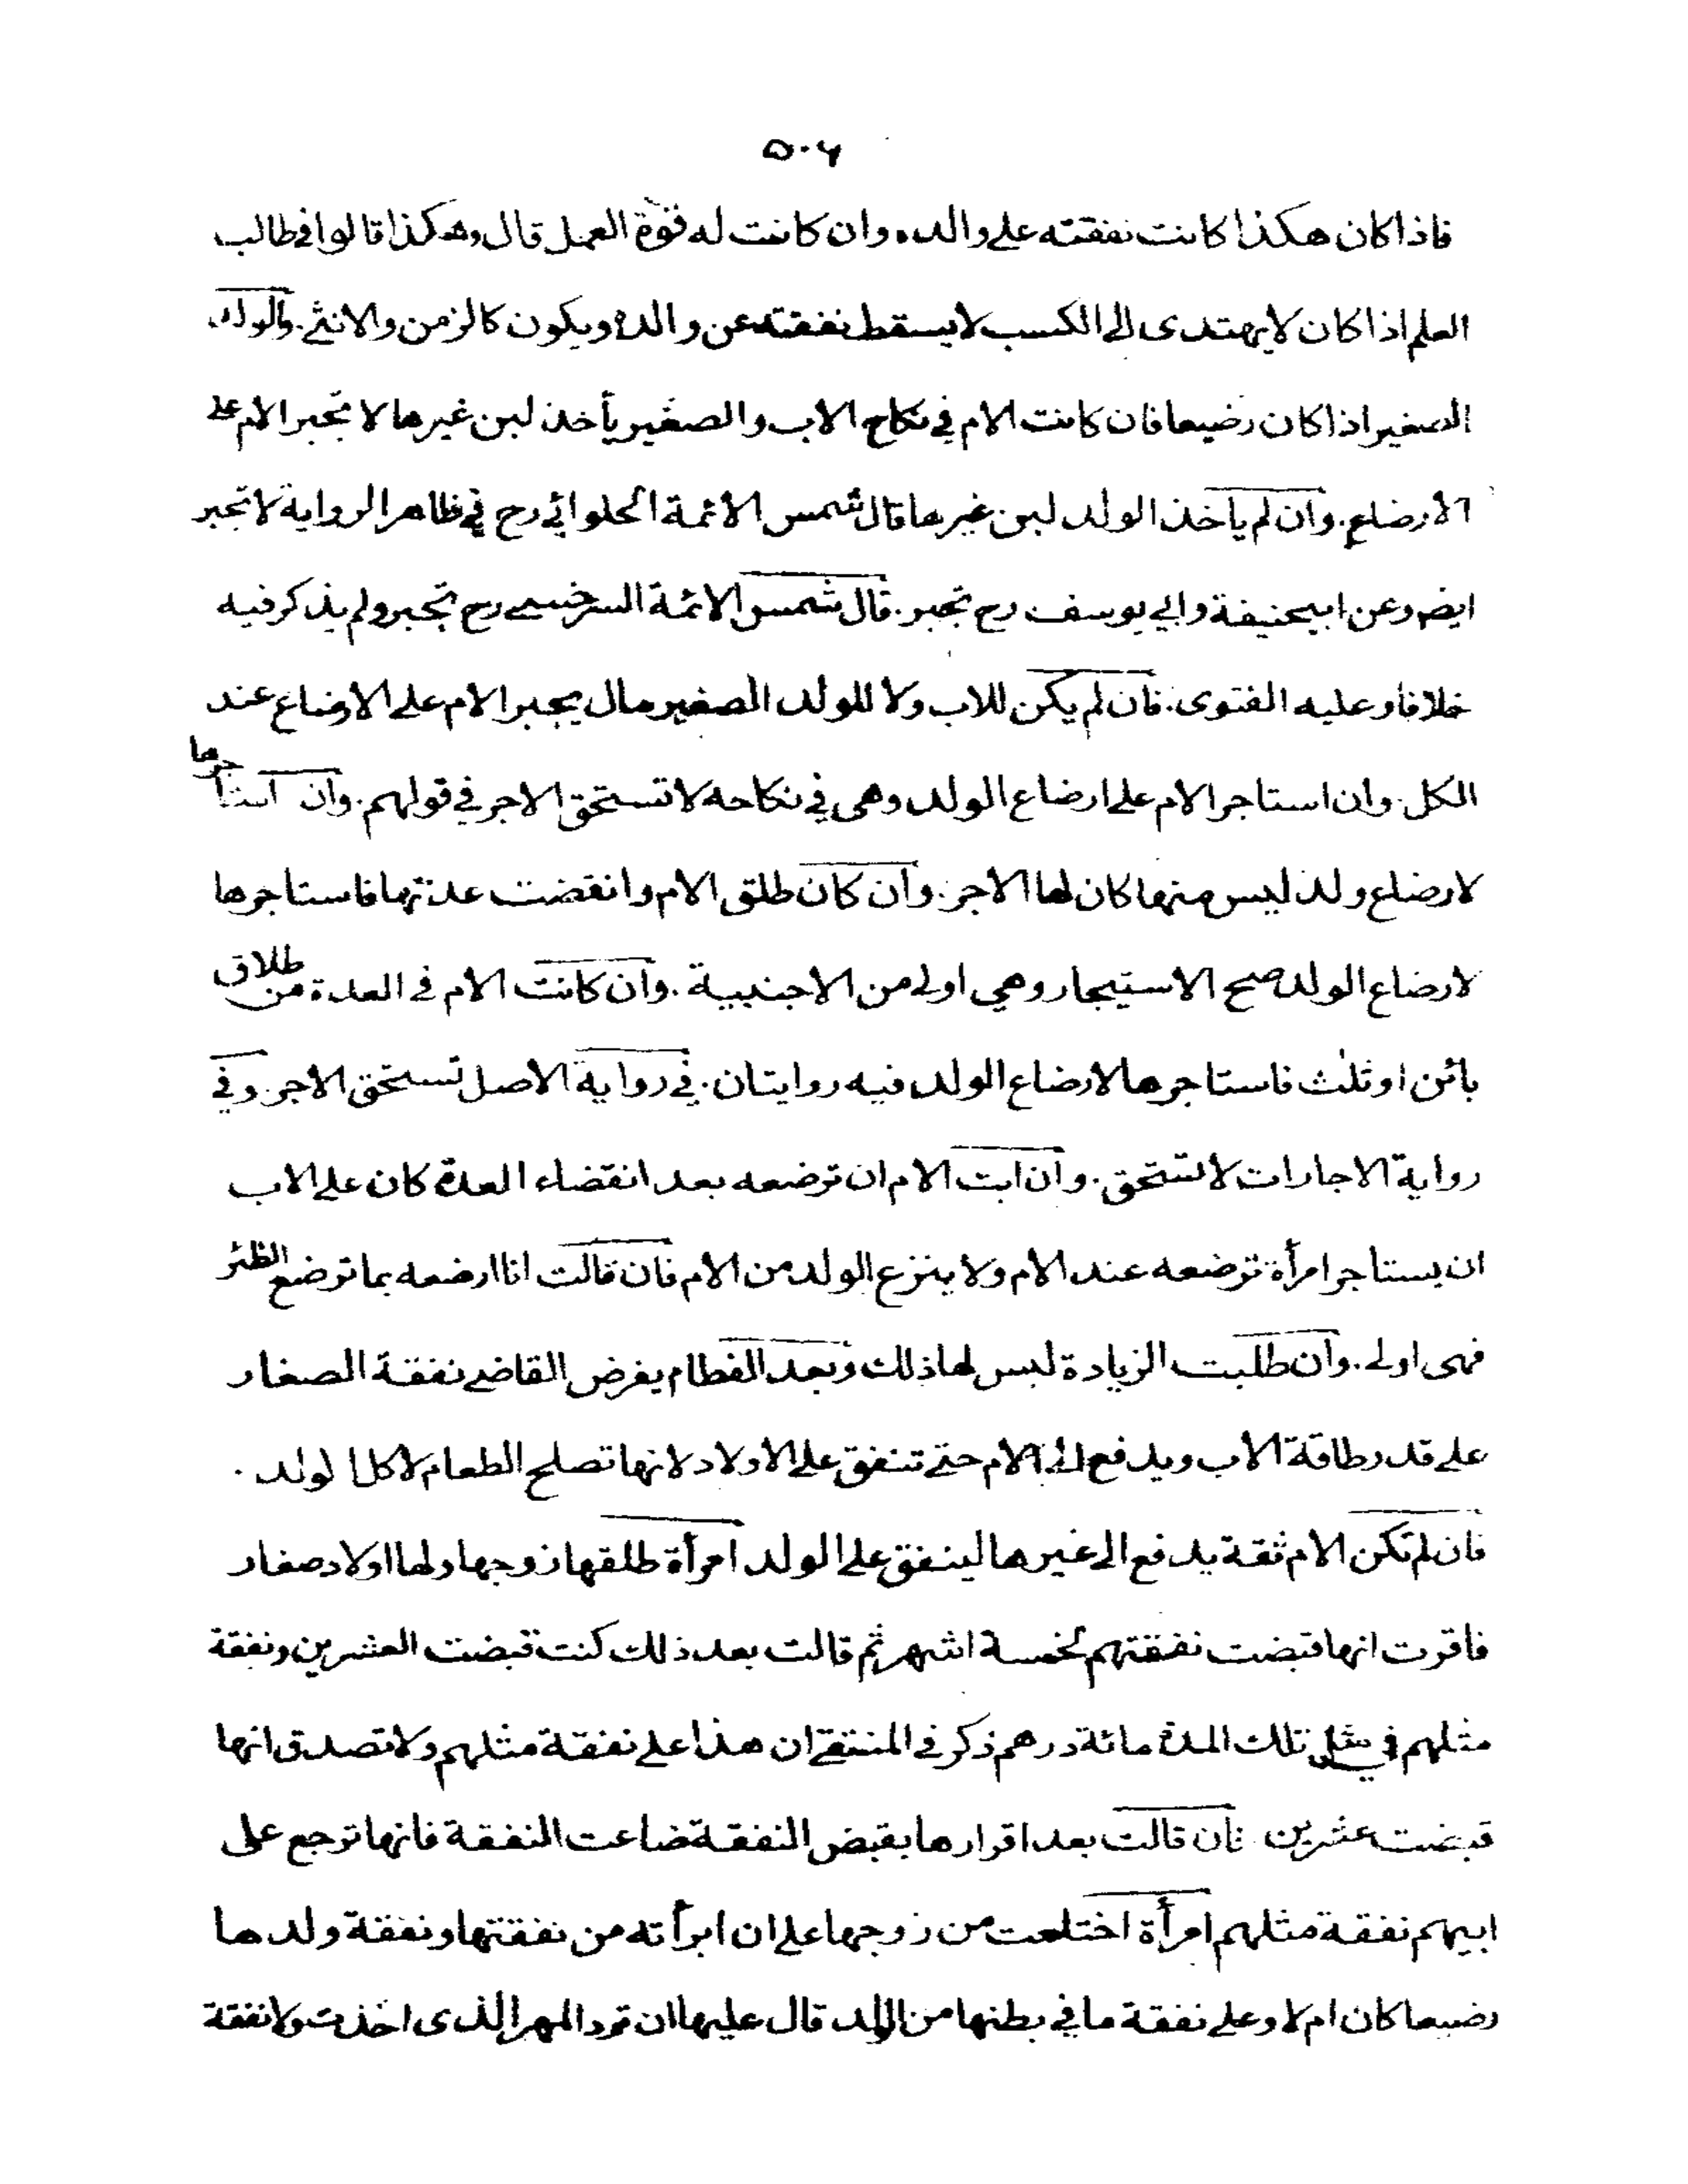 ۵۰۶
فاذا كان هكذا كانت نفقته على والده وان كانت له قوة العمل قال وهكذا قالوا في طالب
العلم اذا كان لا يهتدى الى الكسب لا يسقط نفقته عن والده ويكون كالزمن والانثى. والولد
الصغير اذا كان رضيعا فان كانت الام في نكاح الاب والصغير يأخذ لبن غيرها لا تجبر الام على
الارضاع. وان لم ياخذ الولد لبن غيرها قال شمس الأئمة الحلوائي رح في ظاهر الرواية لا تجبر
ايضم وعن ابيحنيفة وابي يوسف رح تجبر. قال شمس الائمة السرخسي رح تجبر ولم يذكر فيه
خلافا وعليه الفتوى. فان لم يكن للاب ولا للولد الصغير مال يجبر الام على الارضاع عند
الكل. وان استاجر الام على ارضاع الولد وهى في نكاحه لا تستحق الاجر في قولهم. وان استأجرها
لارضاع ولد ليس منها كان لها الاجر. وان كان طلق الام وانقضت عدتها فاستاجرها
لارضاع الولد صح الاستيجار وهي اولى من الاجنبية. وان كانت الام في العدة من طلاق
بائن او ثلث فاستاجرها لارضاع الولد فيه روايتان. في رواية الاصل تستحق الاجر وفي
رواية الاجارات لا تستحق. وان ابت الام ان ترضعه بعد انقضاء العدة كان على الاب
ان يستاجر امرأة ترضعه عند الام ولا ينزع الولد من الام فان قالت انا ارضعه بما ترضع الظئر
فهى اولى. وان طلبت الزيادة ليس لها ذلك وبعد الفطام يفرض القاضي نفقة الصغار
على قدر طاقة الاب ويدفع الى الام حتى تنفق على الاولاد لانها تصلح الطعام لاكل الولد.
فان لم تكن الام ثقة يدفع الى غيرها لينفق على الولد امرأة طلقها زوجها ولها اولاد صغار
فاقرت انها قبضت نفقتهم لخمسة اشهر ثم قالت بعد ذلك كنت قبضت العشرين ونفقة
مثلهم في مثل تلك المدة مائة درهم ذكر في المنتقى ان هذا على نفقة مثلهم ولا تصدق انها
قبضت عشرين فان قالت بعد اقرارها بقبض النفقة ضاعت النفقة فانها ترجع على
ابيهم نفقة مثلهم امرأة اختلعت من زوجها على ان ابرأته من نفقتها ونفقة ولدها
رضيعا كان ام لا وعلى نفقة ما في بطنها من الولد قال عليها ان ترد المهر الذى اخذت ولا نفقة